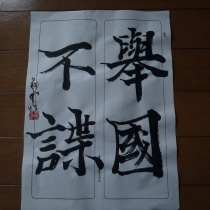 舉國
不諜